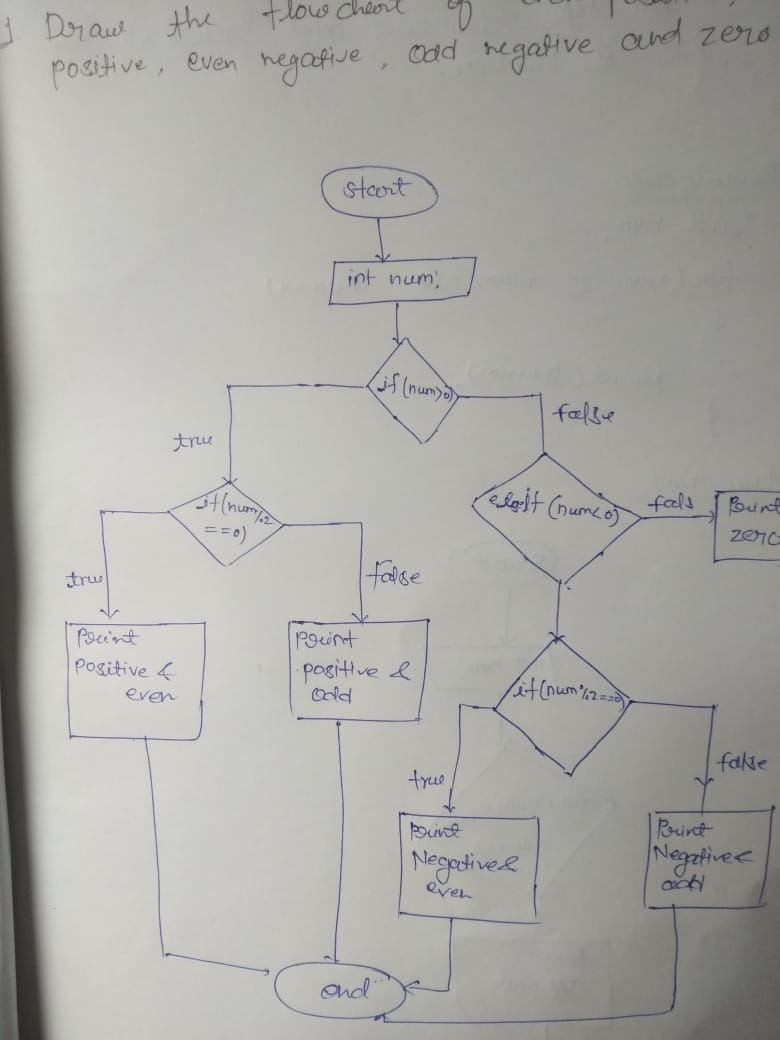 1. Draw the flowchart of even
positive, even negative, odd negative and zero
start
int num;
if (num>0)
true
false
if (num%2
==0)
elseif (num<0)
fals
Print
zero
true
false
Print
Positive &
even
Print
positive &
odd
if (num%2==0)
true
false
Print
Negative &
even
Print
Negative &
odd
end